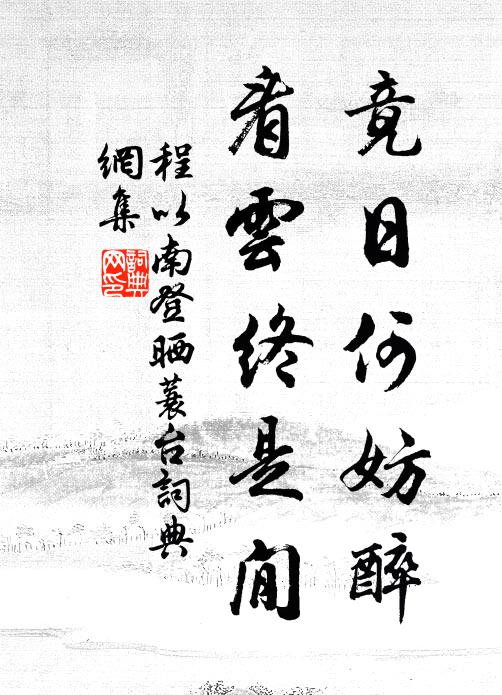 竟日何妨醉
看雲終是閒
程以南登晒蓑台詞典
網集
詞典
网印